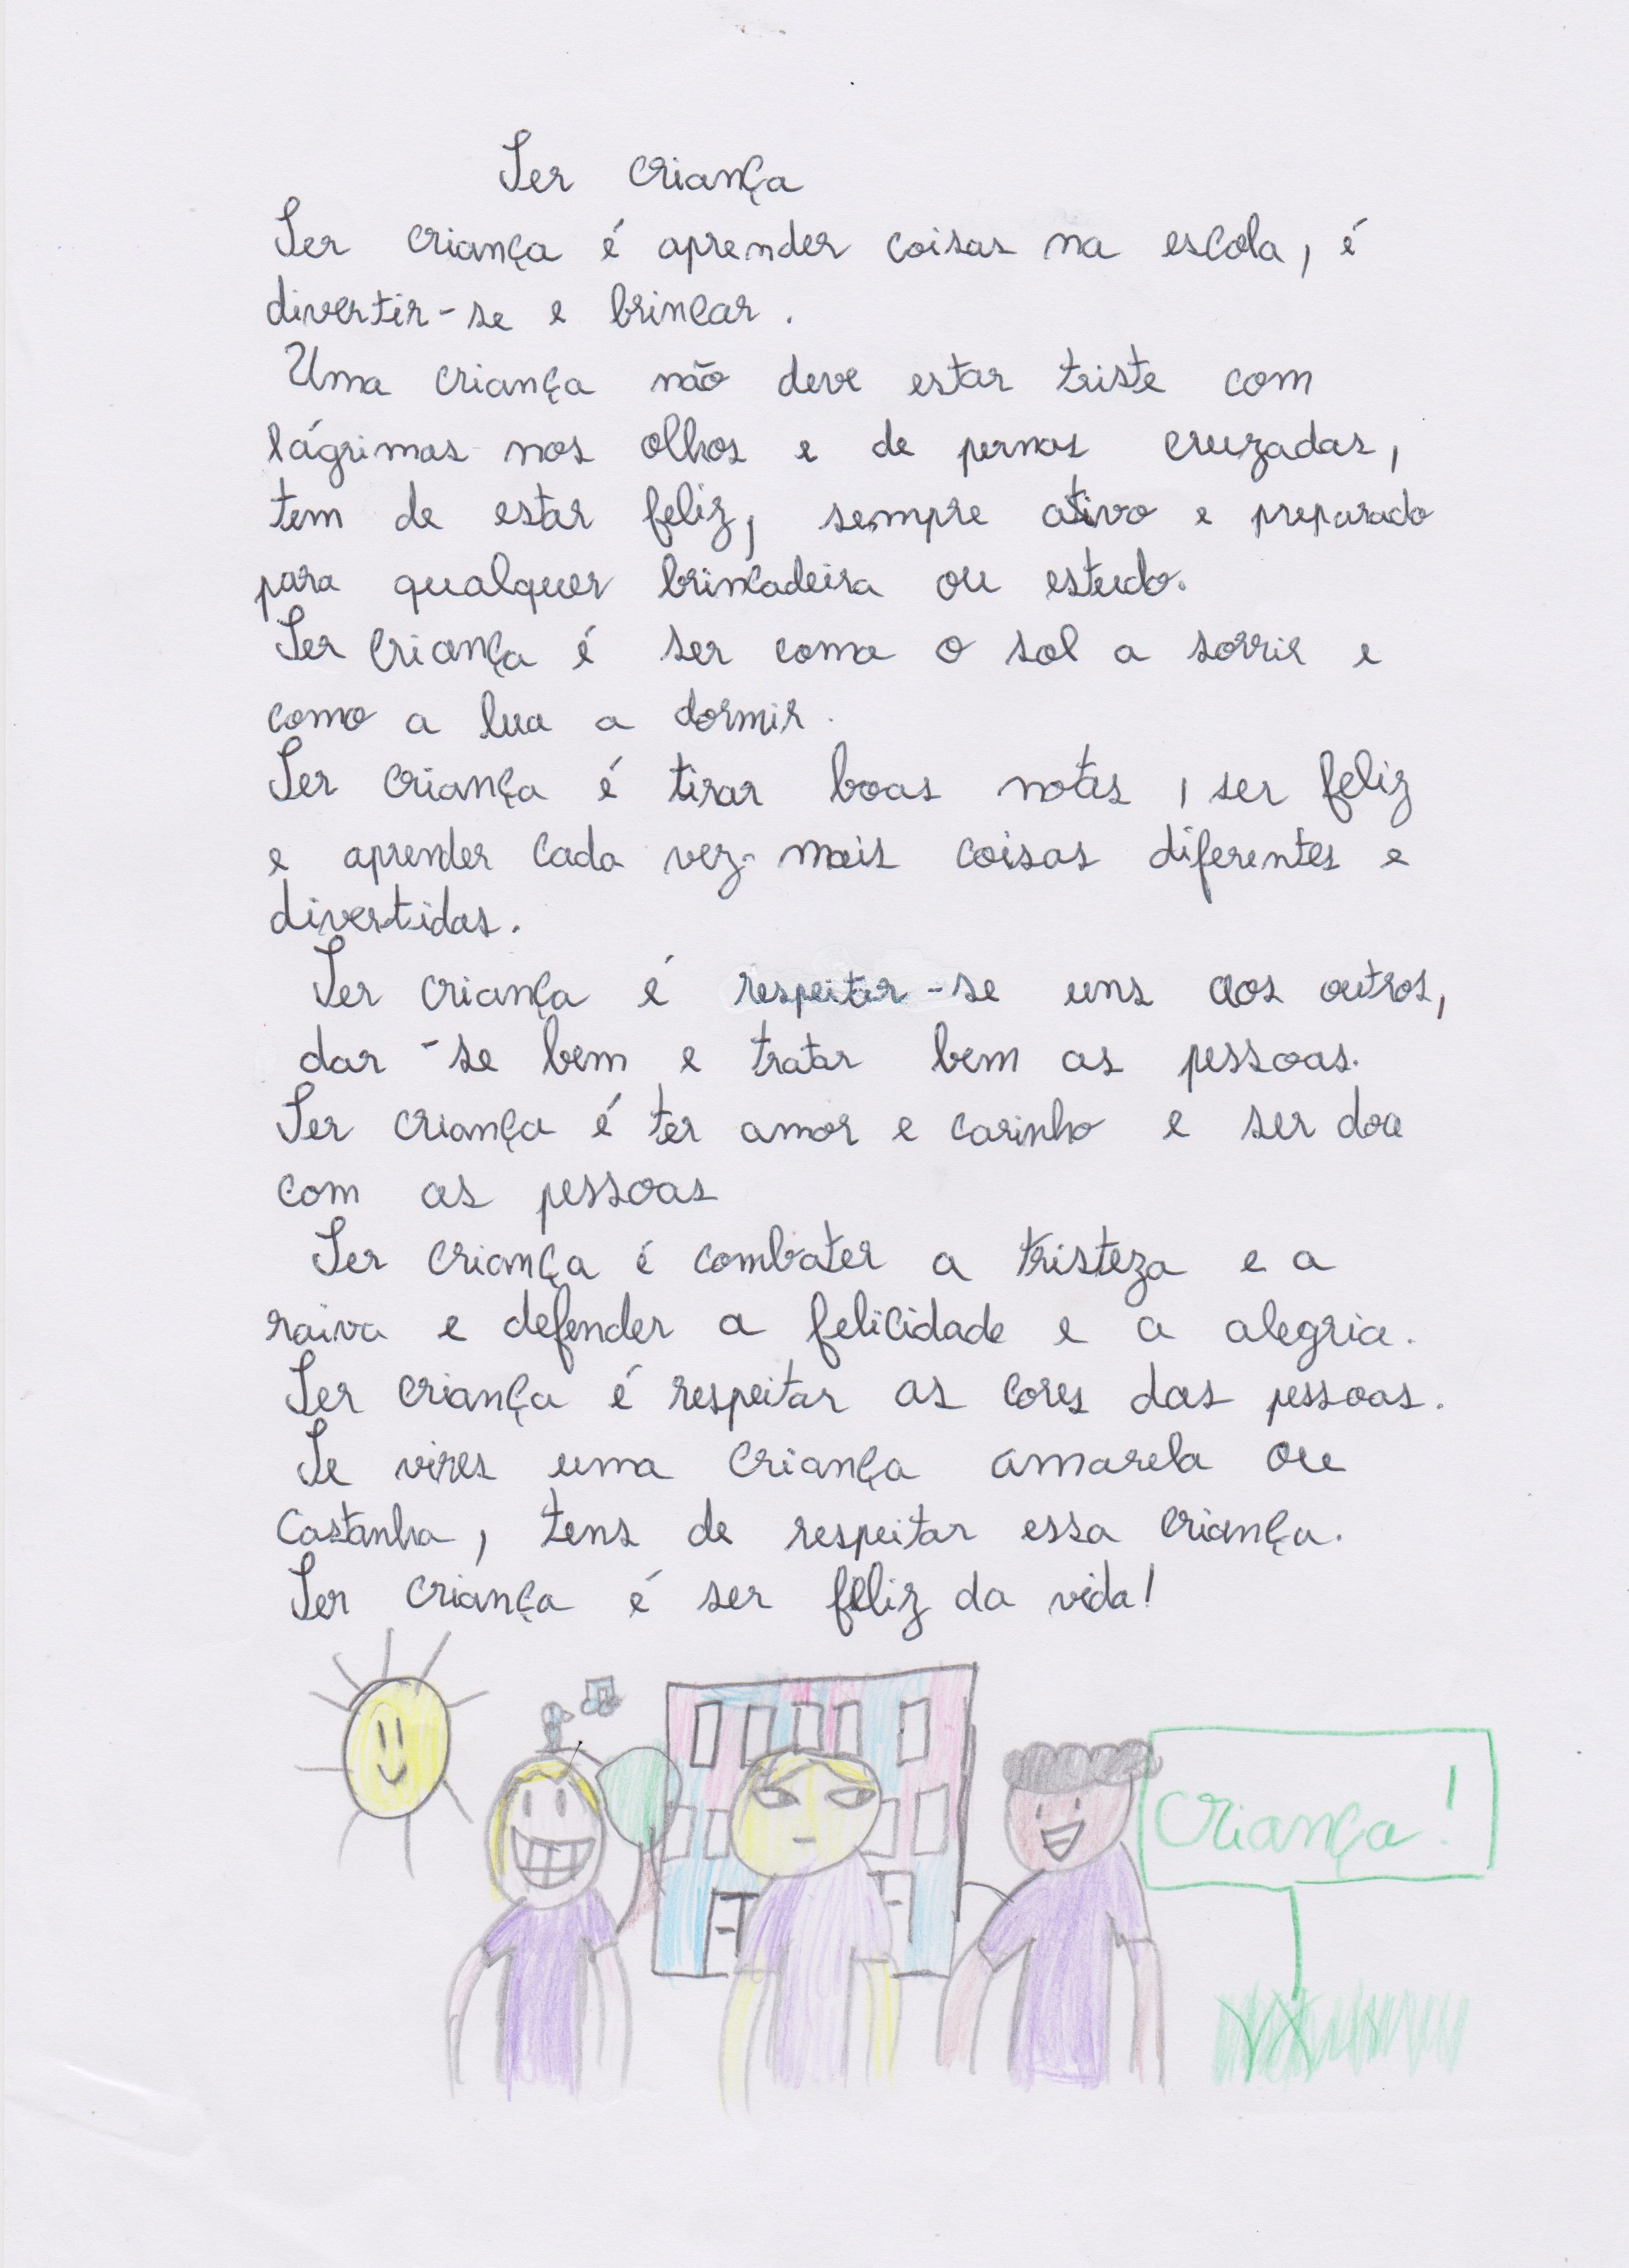 Ser criança
Ser criança é aprender coisas na escola, é
divertir-se e brincar.
Uma criança não deve estar triste com
lágrimas nos olhos e de pernas cruzadas,
tem de estar feliz, sempre ativo e preparado
para qualquer brincadeira ou estudo.
Ser criança é ser como o sol a sorrir e
como a lua a dormir.
Ser criança é tirar boas notas, ser feliz
e aprender cada vez mais coisas diferentes e
divertidas.
Ser criança é respeitar-se uns aos outros,
dar-se bem e tratar bem as pessoas.
Ser criança é ter amor e carinho e ser doce
com as pessoas
Ser criança é combater a tristeza e a
raiva e defender a felicidade e a alegria.
Ser criança é respeitar as cores das pessoas.
Se vires uma criança amarela ou
castanha, tens de respeitar essa criança.
Ser criança é ser feliz da vida!
Criança!